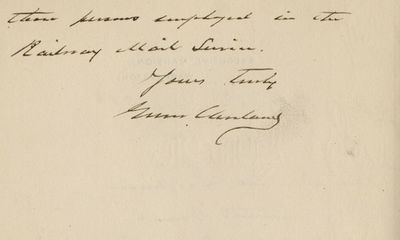 those persons employed in the
Railway Mail Service.
Yours truly
Grover Cleveland